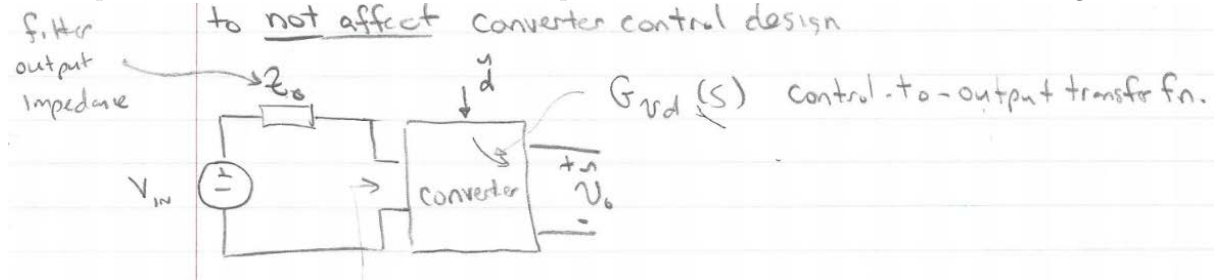 to not affect converter control design
filter
output
impedance
Zo
d̂
Gvd(s) control-to-output transfer fn.
VIN
+
-
converter
+
v̂o
-